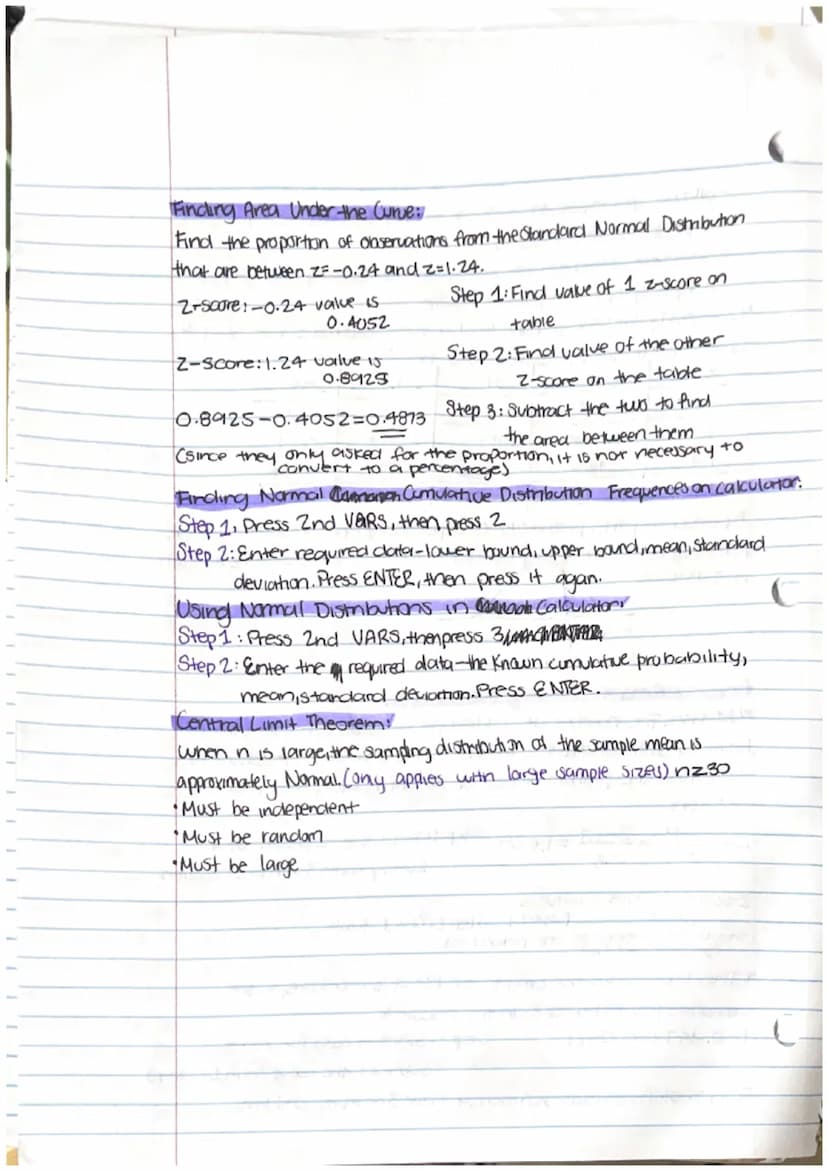 Finding Area Under the Curve:
Find the proportion of observations from the Standard Normal Distribution
that are between z=-0.24 and z=1.24.
Z-score: -0.24 value is
0.4052
Step 1: Find value of 1 z-score on
table
Z-Score: 1.24 value is
0.8925
Step 2: Find value of the other
z-score on the table
0.8925-0.4052=0.4873
Step 3: Subtract the two to find
the area between them
(since they only asked for the proportion, it is not necessary to
convert to a percentage)
Finding Normal Cumulative Distribution Frequences on calculator:
Step 1: Press 2nd VARS, then press 2
Step 2: Enter required data-lower bound, upper bound, mean, Standard
deviation. Press ENTER, then press it again.
Using Normal Distributions in Calculator:
Step 1: Press 2nd VARS, then press 3
Step 2: Enter the required data-the known cumulative probability,
mean, standard deviation. Press ENTER.
Central Limit Theorem:
When n is large, the sampling distribution of the sample mean is
approximately Normal. (only applies with large sample sizes) n≥30
• Must be independent
• Must be random
• Must be large